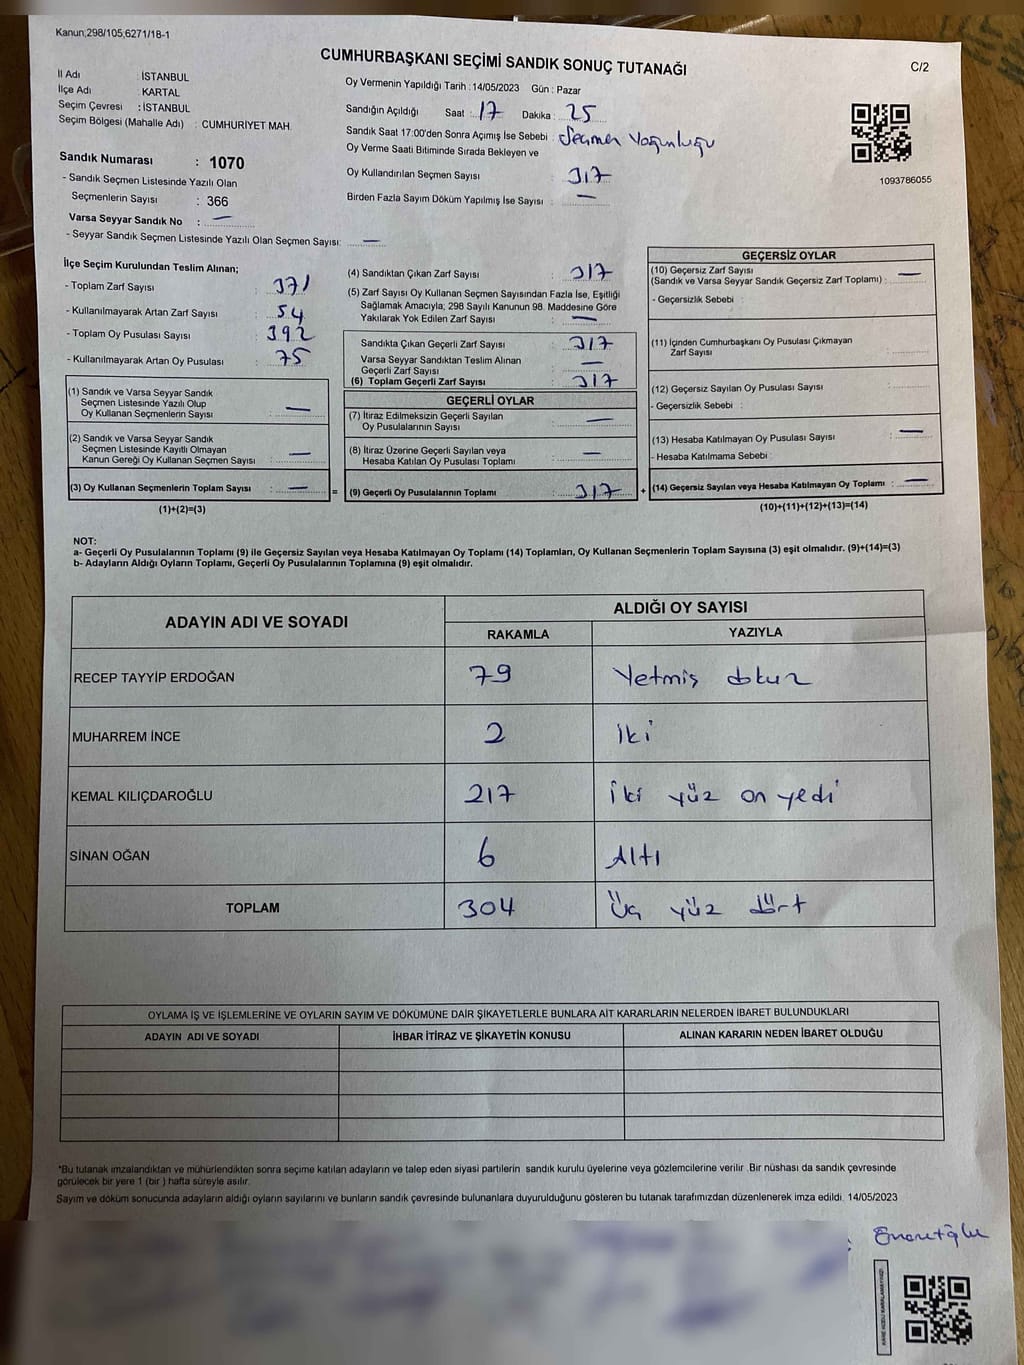 Kanun;298/105;6271/18-1
CUMHURBAŞKANI SEÇİMİ SANDIK SONUÇ TUTANAĞI
C/2
İl Adı : İSTANBUL
İlçe Adı : KARTAL
Seçim Çevresi : İSTANBUL
Seçim Bölgesi (Mahalle Adı) : CUMHURİYET MAH.
Oy Vermenin Yapıldığı Tarih : 14/05/2023 Gün : Pazar
Sandığın Açıldığı Saat : 17 Dakika : 25
Sandık Saat 17:00'den Sonra Açımış İse Sebebi : Seçmen Yoğunluğu
Oy Verme Saati Bitiminde Sırada Bekleyen ve
Oy Kullandırılan Seçmen Sayısı : 317
Birden Fazla Sayım Döküm Yapılmış İse Sayısı : —
1093786055
Sandık Numarası : 1070
- Sandık Seçmen Listesinde Yazılı Olan
Seçmenlerin Sayısı : 366
Varsa Seyyar Sandık No : —
- Seyyar Sandık Seçmen Listesinde Yazılı Olan Seçmen Sayısı: —
İlçe Seçim Kurulundan Teslim Alınan;
- Toplam Zarf Sayısı : 371
- Kullanılmayarak Artan Zarf Sayısı : 54
- Toplam Oy Pusulası Sayısı : 392
- Kullanılmayarak Artan Oy Pusulası : 75
(1) Sandık ve Varsa Seyyar Sandık
Seçmen Listesinde Yazılı Olup
Oy Kullanan Seçmenlerin Sayısı : —
(2) Sandık ve Varsa Seyyar Sandık
Seçmen Listesinde Kayıtlı Olmayan
Kanun Gereği Oy Kullanan Seçmen Sayısı : —
(3) Oy Kullanan Seçmenlerin Toplam Sayısı : — =
(1)+(2)=(3)
(4) Sandıktan Çıkan Zarf Sayısı : 317
(5) Zarf Sayısı Oy Kullanan Seçmen Sayısından Fazla İse, Eşitliği
Sağlamak Amacıyla; 298 Sayılı Kanunun 98. Maddesine Göre
Yakılarak Yok Edilen Zarf Sayısı : —
Sandıkta Çıkan Geçerli Zarf Sayısı : 317
Varsa Seyyar Sandıktan Teslim Alınan
Geçerli Zarf Sayısı : —
(6) Toplam Geçerli Zarf Sayısı : 317
GEÇERLİ OYLAR
(7) İtiraz Edilmeksizin Geçerli Sayılan
Oy Pusulalarının Sayısı : —
(8) İtiraz Üzerine Geçerli Sayılan veya
Hesaba Katılan Oy Pusulası Toplamı : —
(9) Geçerli Oy Pusulalarının Toplamı : 317 +
GEÇERSİZ OYLAR
(10) Geçersiz Zarf Sayısı
(Sandık ve Varsa Seyyar Sandık Geçersiz Zarf Toplamı) : —
- Geçersizlik Sebebi :
(11) İçinden Cumhurbaşkanı Oy Pusulası Çıkmayan
Zarf Sayısı :
(12) Geçersiz Sayılan Oy Pusulası Sayısı :
- Geçersizlik Sebebi :
(13) Hesaba Katılmayan Oy Pusulası Sayısı : —
- Hesaba Katılmama Sebebi :
(14) Geçersiz Sayılan veya Hesaba Katılmayan Oy Toplamı : —
(10)+(11)+(12)+(13)=(14)
NOT:
a- Geçerli Oy Pusulalarının Toplamı (9) ile Geçersiz Sayılan veya Hesaba Katılmayan Oy Toplamı (14) Toplamları, Oy Kullanan Seçmenlerin Toplam Sayısına (3) eşit olmalıdır. (9)+(14)=(3)
b- Adayların Aldığı Oyların Toplamı, Geçerli Oy Pusulalarının Toplamına (9) eşit olmalıdır.
ADAYIN ADI VE SOYADI ALDIĞI OY SAYISI
RAKAMLA YAZIYLA
RECEP TAYYİP ERDOĞAN 79 Yetmiş dokuz
MUHARREM İNCE 2 İki
KEMAL KILIÇDAROĞLU 217 İki yüz on yedi
SİNAN OĞAN 6 Altı
TOPLAM 304 Üç yüz dört
OYLAMA İŞ VE İŞLEMLERİNE VE OYLARIN SAYIM VE DÖKÜMÜNE DAİR ŞİKAYETLERLE BUNLARA AİT KARARLARIN NELERDEN İBARET BULUNDUKLARI
ADAYIN ADI VE SOYADI İHBAR İTİRAZ VE ŞİKAYETİN KONUSU ALINAN KARARIN NEDEN İBARET OLDUĞU
*Bu tutanak imzalandıktan ve mühürlendikten sonra seçime katılan adayların ve talep eden siyasi partilerin sandık kurulu üyelerine veya gözlemcilerine verilir .Bir nüshası da sandık çevresinde
görülecek bir yere 1 (bir ) hafta süreyle asılır.
Sayım ve döküm sonucunda adayların aldığı oyların sayılarını ve bunların sandık çevresinde bulunanlara duyurulduğunu gösteren bu tutanak tarafımızdan düzenlenerek imza edildi. 14/05/2023